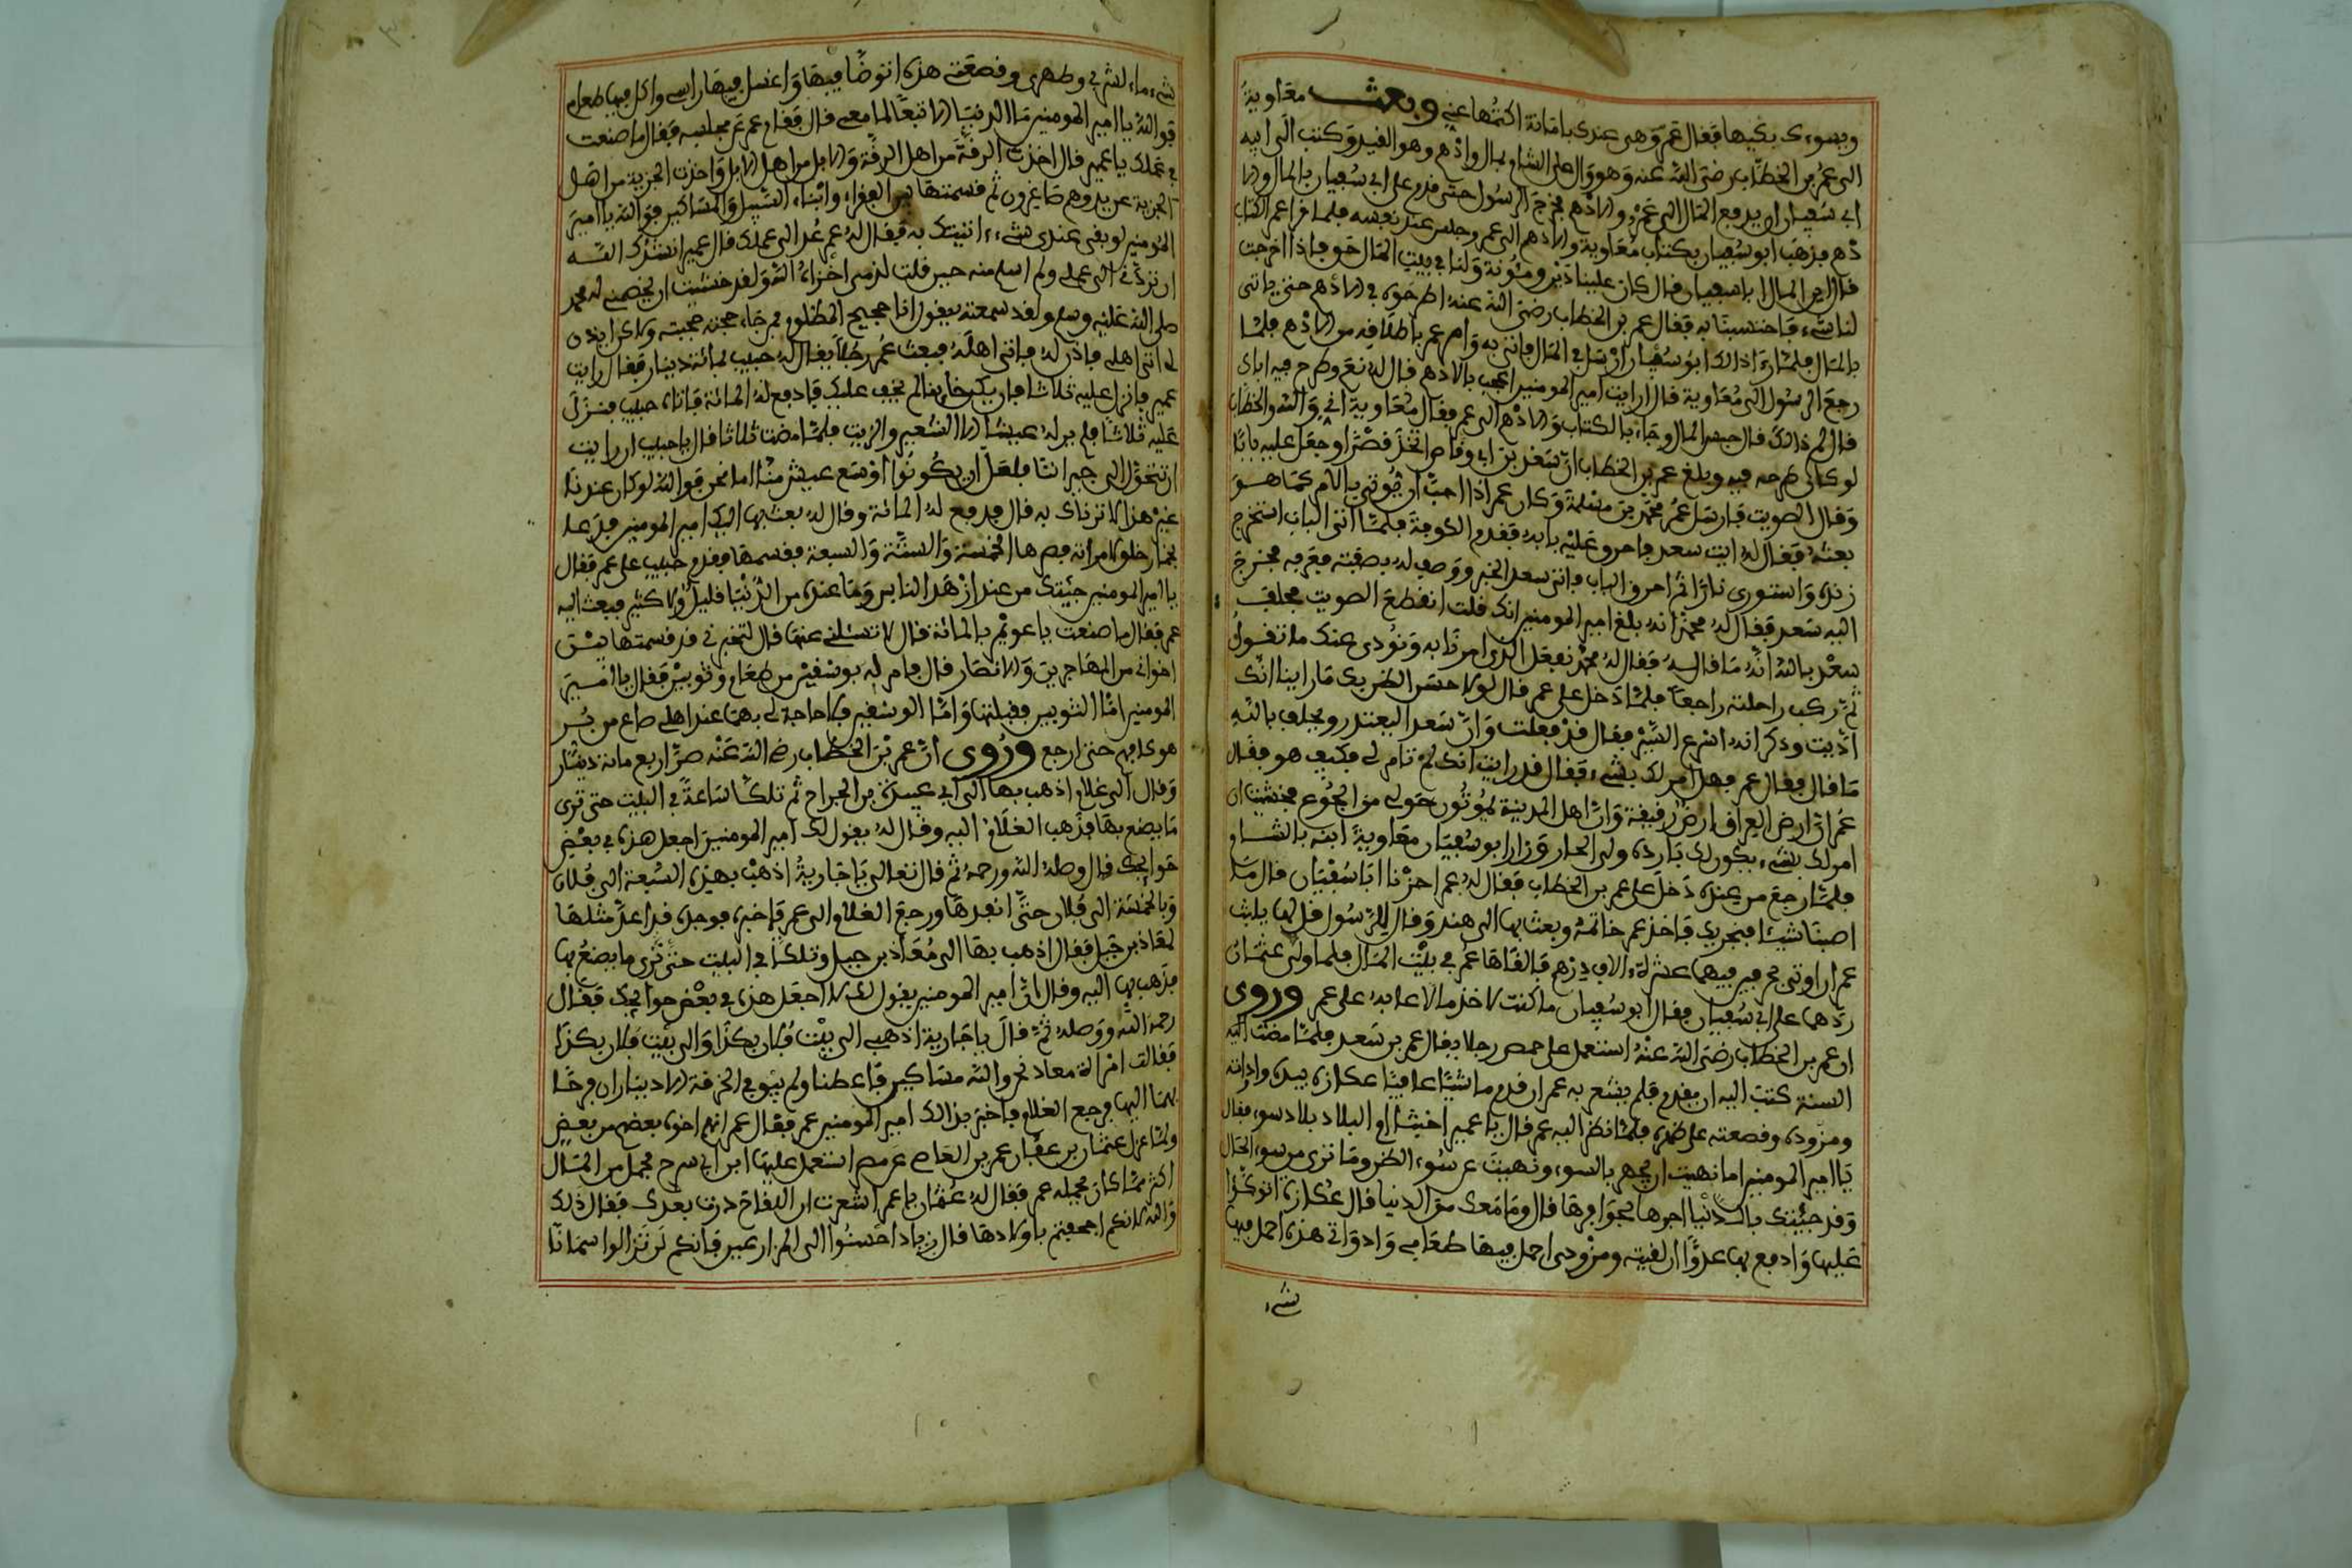 ويسوءك بغيها فقال عمر وهي عندي بامانة اكتمها عني وبعث معاوية
الى عمر بن الخطاب رضي الله عنه وهو وال على الشام بمال وادهم وهو القيد وكتب الى ابيه
ابي سفيان ان يدفع المال الى عمر والادهم فخرج الرسول حتى قدم على ابي سفيان بالمال والا
دهم فذهب ابو سفيان بكتاب معاوية والادهم الى عمر وحبس عند نفسه فلما قرا عمر الكتاب
قال اين المال يا ابا سفيان قال كان علينا دين ومئونة ولنا في بيت المال حق فاذا اخرجت
لنا شيء فاحتسبنا به فقال عمر بن الخطاب رضي الله عنه اطرحوه في الادهم حتى ياتي
بالمال فلما رءا ذالك ابو سفيان ارسل في المال فاتي به وامر عمر باطلاقه من الادهم فلما
رجع الرسول الى معاوية قال ارايت امير المومنين اعجب بالادهم قال له نعم وطرح فيه اباك
قال لم ذالك قال حبس المال وجاء بالكتاب والادهم الى عمر فقال معاوية اي والله والخطاب
لو كان طرحه فيه وبلغ عمر بن الخطاب ان سعد بن ابي وقاص اتخذ قصرا وجعل عليه بابا
وقال الصويت فارسل عمر محمد بن مسلمة وكان عمر اذا احب ان يوتى بالامر كما هو
بعثه فقال له ايت سعد فاحرق عليه بابه فقدم الكوفة فلما اتى الباب استخرج
زنده واستورى نارا ثم احرق الباب فاتي سعد الخبر ووصف له بصفته فعرفه فخرج
اليه سعد فقال له محمد انه بلغ امير المومنين انك قلت انقطع الصويت فحلف
سعد بالله انه ما قاله فقال له محمد نفعل الذي امرنا به ونودي عنك ما تقول
ثم ركب راحلته راجعا فلما دخل على عمر قال لولا حسن الظن بك ما راينا انك
اديت وذكر انه اسرع السير فقال قد فعلت وان سعد اليعتذر ويحلف بالله
ما قال فقال عمر فهل امر لك بشيء فقال قد رايت انك لم تامر لي فكيف هو فقال
عمر ان ارض العراق ارض رفيقة وان اهل المدينة يموتون حولي من الجوع فخشيت ان
امر لك بشيء يكون لك بارده ولي الحار وزار ابو سفيان معاوية ابنه بالشام
فلما رجع من عنده دخل على عمر بن الخطاب فقال له عمر اجزنا ابا سفيان قال ما
اصبنا شيئا فنجزيك فاخذ عمر خاتمه وبعث بها الى هند وقال للرسول قل لها
عمر ان اوتي بخرجين فيهما عشرة ءالاف درهم فالقاها عمر في بيت المال فلما ولي عثمان
ردهما على ابي سفيان فقال ابو سفيان ما كنت لاخذ مالا عابه علي عمر وروي
ان عمر بن الخطاب رضي الله عنه استعمل على حمص رجلا يقال عمير بن سعد فلما مضت اليه
السنة كتب اليه ان يقدم فلم يشعر به عمر ان قدم ماشيا حافيا عكازه بيده واداوته
ومزوده وقصعته على ظهره فلما نظر اليه عمر قال يا عمير اخنتنا ام البلاد بلاد سوء فقال
يا امير المومنين اما نهيت ان تجهر بالسوء ونهيت عن سوء الظن وما ترى من سوء الحال
وقد جئتك بالدنيا اجرها بحوافرها قال وما معك من الدنيا قال عكازه اتوكؤا
عليها وادفع بها عدوا ان لقيته ومزودي احمل فيها طعامي وادواتي هذه احمل فيها
شيء
شيء ماء لشربي وطهري وقصعتي هذه اتوضا فيها واغسل فيها راسي واكل فيها طعامي
فوالله يا امير المومنين ما الدنيا الا تبعا لما معي قال فقام عمر عن مجلسه فقال ما صنعت
في عملك يا عمير قال اخذت الرقة من اهل الرقة والابل من اهل الابل واخذت الجزية من اهل
الجزية عن يد وهم صاغرون ثم قسمتها بين الفقراء وابناء السبيل والمساكين فوالله يا امير
المومنين لو بقي عندي شيء اتيتك به فقال له عمر عد الى عملك قال عمير انشدك الله
ان تردني الى عملي ولم اسلم منه حين قلت لذمي اخزاك الله ولقد خشيت ان يخصمني له محمد
صلى الله عليه وسلم ولقد سمعته يقول انا حجيج المظلوم فمن حججته حججته ولاكن ايذن
لي اتي اهلي فاذن له فاتى اهله فبعث عمر رجلا يقال له حبيب بمائة دينار فقال رايت
عمير فانزل عليه ثلاثا فان يكن خائنا لم يخف عليك فادفع له المائة فاتاه حبيب فنزل
عليه ثلاثا فلم ير له عيشا الا الشعير والزيت فلما مضت ثلاثا قال يا حبيب ان رايت
ان تتحول الى جيراننا فلعل ان يكونوا اوسع عيش منا اما نحن فوالله لو كان عندنا
غير هذا لاثرناك به قال فدفع له المائة وقال له بعث بها اليك امير المومنين فدعا
بخمار خلق لامراته فصرها الخمسة والستة والسبعة فقسمها فقدم حبيب على عمر فقال
يا امير المومنين جئتك من عند ازهد الناس وما عنده من الدنيا قليل ولا كثير فبعث اليه
عمر فقال ما صنعت يا عويمر بالمائة قال لا تسئلني عنها قال لتخبرني قد قسمتها بين
اخواني من المهاجرين والانصار قال فامر له بوسقين من طعام وثوبين فقال يا امير
المومنين اما الثوبين فقبلتها واما الوسقين فلا حاجة لي بهما عند اهلي صاع من بر
هو كافيهم حتى ارجع وروي ان عمر بن الخطاب رضي الله عنه صر اربع مائة دينار
وقال الى غلام اذهب بها الى ابي عبيدة بن الجراح ثم تلكا ساعة في البيت حتى ترى
ما يصنع بها فذهب الغلام اليه وقال له يقول لك امير المومنين اجعل هذه في بعض
حوايجك قال وصله الله ورحمه ثم قال تعالي يا جارية اذهب بهذه السبعة الى فلان
وبالخمسة الى فلان حتى انفدها ورجع الغلام الى عمر فاخبره فوجده قد اعد مثلها
لمعاذ بن جبل فقال اذهب بها الى معاذ بن جبل وتلكا في البيت حتى ترى ما يصنع بها
فذهب بها اليه وقال ان امير المومنين يقول لك اجعل هذه في بعض حوايجك فقال
رحمه الله ووصله ثم قال يا جارية اذهبي الى بيت فلان بكذا والى بيت فلان بكذا
فقالت امراة معاذ نحن والله مساكين فاعطنا ولم يبق في الخرقة الا ديناران فرمى
بهما اليها فرجع الغلام فاخبر بذالك امير المومنين عمر فقال عمر انهم اخوة بعضهم من بعض
ولما عزل عثمان بن عفان عمر بن العاص عن مصر استعمل عليها ابن ابي سرح فحمل من المال
اكثر مما كان يحمله عمر فقال له عثمان يا عمر اشعرت ان اللقاح درت بعدك فقال ذلك
والله لانكم اجحفتم باولادها قال زياد احسنوا الى المزارعين فانكم لن تزالوا سمانا